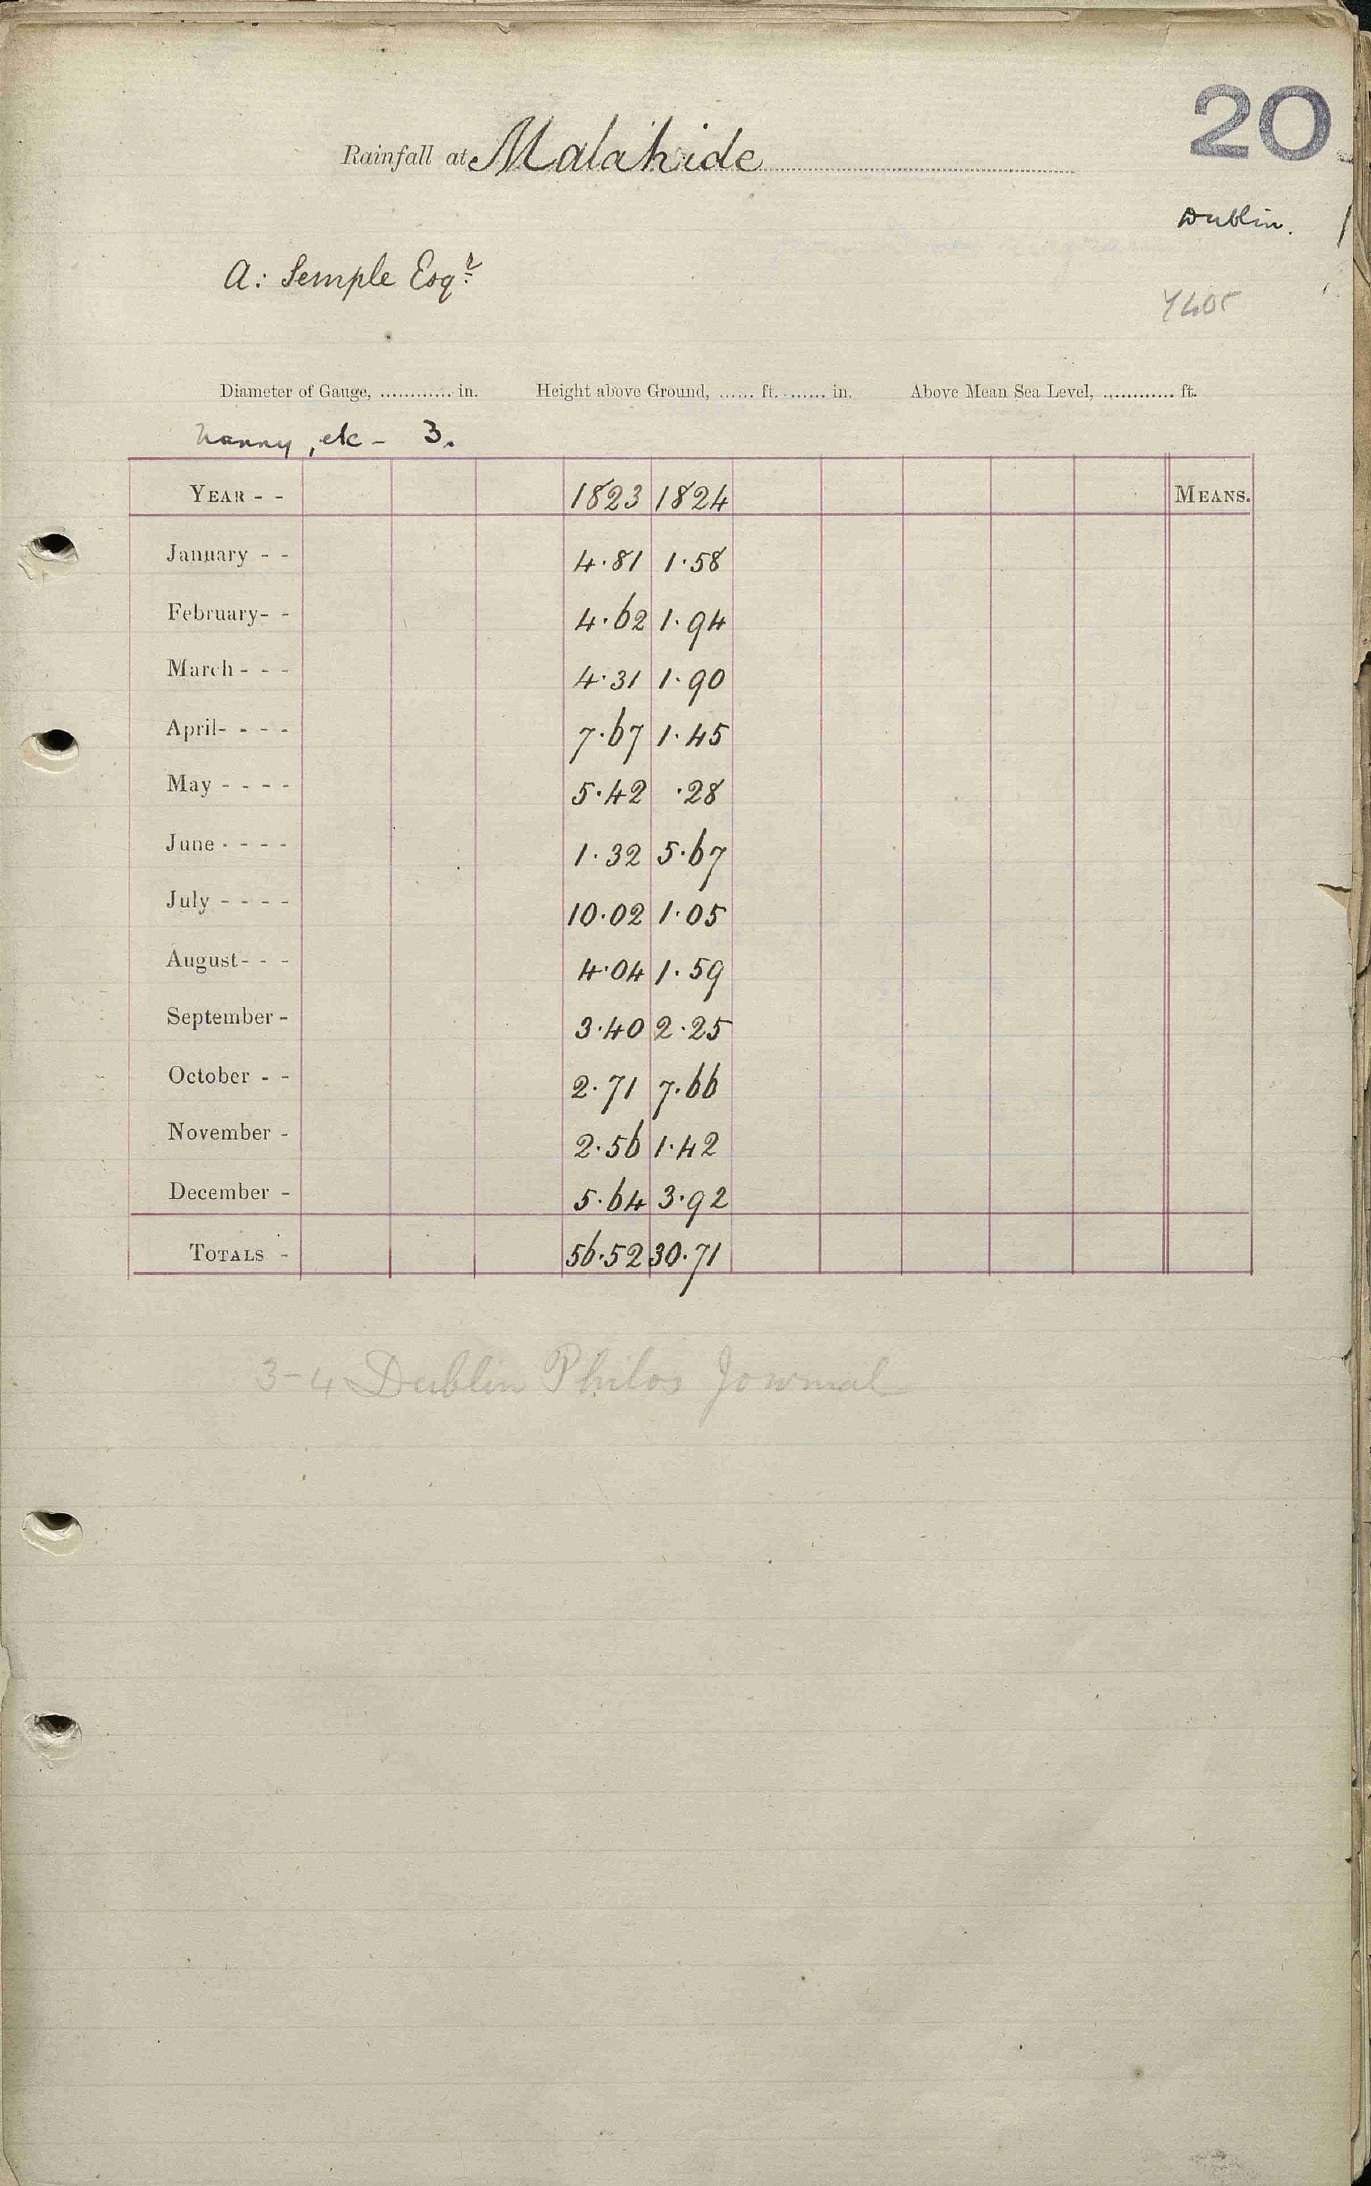 20
Rainfall at Malahide
Dublin.
A: Semple Esqr
Diameter of Gauge, ............ in. Height above Ground, ...... ft. ....... in. Above Mean Sea Level, ............ ft.
Nanny, etc - 3.
YEAR - - 1823 1824 MEANS.
January - - 4.81 1.58
February- - 4.62 1.94
March - - - 4.31 1.90
April- - - - 7.67 1.45
May - - - - 5.42 .28
June - - - - 1.32 5.67
July - - - - 10.02 1.05
August- - - 4.04 1.59
September - 3.40 2.25
October - - 2.71 7.66
November - 2.56 1.42
December - 5.64 3.92
TOTALS - 56.52 30.71
3-4 Dublin Philos Journal